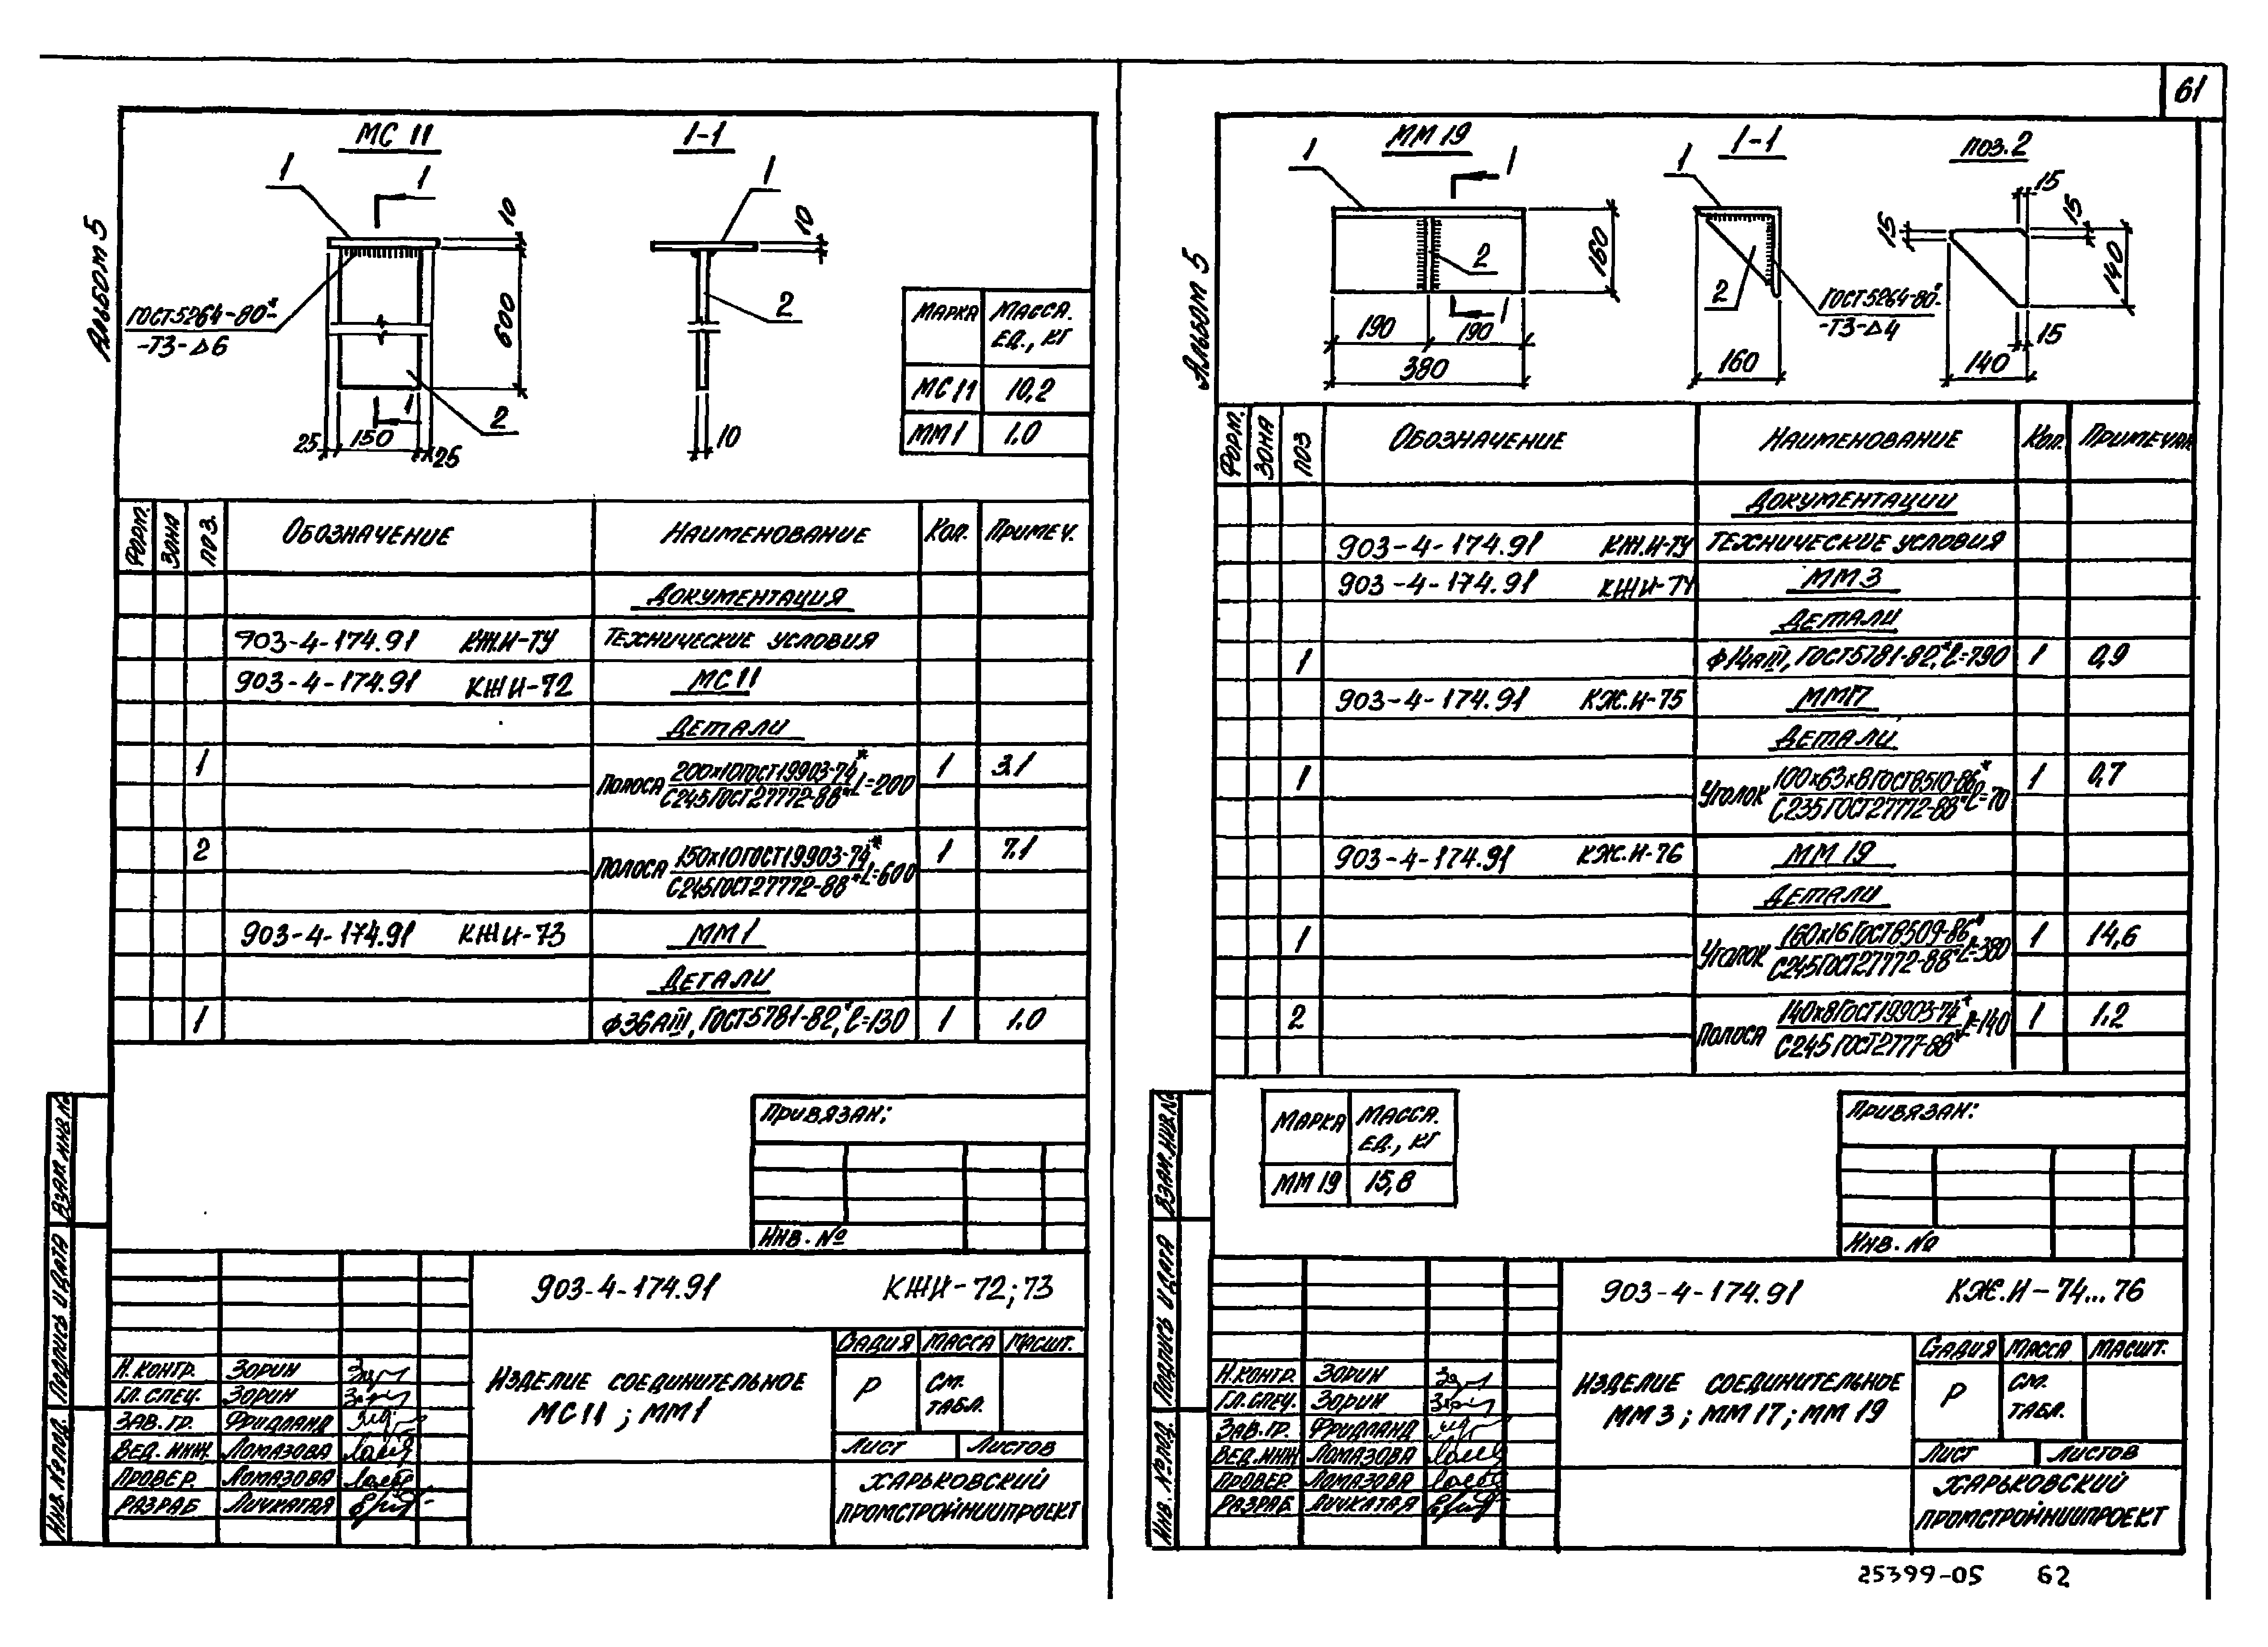 61
Альбом 5
МС 11
1-1
1
1
1
10
10
600
ГОСТ 5264-80*-
-Т3-Δ6
2
2
1
25
150
25
10
МАРКА
МАССА. ЕД., КГ
МС 11
10,2
ММ 1
1.0
ФОРМ.
ЗОНА
ПОЗ.
ОБОЗНАЧЕНИЕ
НАИМЕНОВАНИЕ
КОЛ.
ПРИМЕЧ.
ДОКУМЕНТАЦИЯ
903-4-174.91 КЖ.И-ТУ ТЕХНИЧЕСКИЕ УСЛОВИЯ
903-4-174.91 КЖИ-72 МС 11
ДЕТАЛИ
1 ПОЛОСА 200х10 ГОСТ 19903-74* 1 3.1
С245 ГОСТ 27772-88* L=200
2 ПОЛОСА 150х10 ГОСТ 19903-74* 1 7.1
С245 ГОСТ 27772-88* L=600
903-4-174.91 КЖИ-73 ММ 1
ДЕТАЛИ
1 Ф36АIII, ГОСТ 5781-82*, ℓ=130 1 1.0
ПРИВЯЗАН:
ИНВ. №
ВЗАМ. ИНВ. №
ПОДПИСЬ И ДАТА
ИНВ. № ПОД.
903-4-174.91 КЖИ-72; 73
ИЗДЕЛИЕ СОЕДИНИТЕЛЬНОЕ
МС 11 ; ММ 1
СТАДИЯ МАССА МАСШТ.
Р СМ. ТАБЛ.
ЛИСТ ЛИСТОВ
ХАРЬКОВСКИЙ
ПРОМСТРОЙНИИПРОЕКТ
Н.КОНТР. ЗОРИН
ГЛ. СПЕЦ. ЗОРИН
ЗАВ. ГР. ФРИДЛАНД
ВЕД. ИНЖ ЛОМАЗОВА
ПРОВЕР. ЛОМАЗОВА
РАЗРАБ ЛИЧКАТАЯ
Альбом 5
ММ 19
1-1
ПОЗ. 2
1
1
1
2
2
1
160
190
190
380
160
ГОСТ 5264-80*-
-Т3-Δ4
15
15
15
140
15
140
ФОРМ.
ЗОНА
ПОЗ
ОБОЗНАЧЕНИЕ
НАИМЕНОВАНИЕ
КОЛ.
ПРИМЕЧАН
ДОКУМЕНТАЦИИ
903-4-174.91 КЖ.И-ТУ ТЕХНИЧЕСКИЕ УСЛОВИЯ
903-4-174.91 КЖИ-74 ММ 3
ДЕТАЛИ
1 Ф14АIII, ГОСТ 5781-82*, ℓ=790 1 0,9
903-4-174.91 КЖ.И-75 ММ17
ДЕТАЛИ
1 УГОЛОК 100х63х8 ГОСТ 8510-86* 1 0,7
С235 ГОСТ 27772-88* ℓ=70
903-4-174.91 КЖ.И-76 ММ 19
ДЕТАЛИ
1 УГОЛОК 160х16 ГОСТ 8509-86* 1 14,6
С245 ГОСТ 27772-88* ℓ=380
2 ПОЛОСА 140х8 ГОСТ 19903-74* 1 1.2
С245 ГОСТ 2777-88* ℓ=140
МАРКА
МАССА. ЕД., КГ
ММ 19
15,8
ПРИВЯЗАН:
ИНВ. №
ВЗАМ. ИНВ. №
ПОДПИСЬ И ДАТА
ИНВ. № ПОД.
903-4-174.91 КЖ.И-74...76
ИЗДЕЛИЕ СОЕДИНИТЕЛЬНОЕ
ММ 3 ; ММ 17 ; ММ 19
СТАДИЯ МАССА МАСШТ.
Р СМ. ТАБЛ.
ЛИСТ ЛИСТОВ
ХАРЬКОВСКИЙ
ПРОМСТРОЙНИИПРОЕКТ
Н.КОНТР. ЗОРИН
ГЛ. СПЕЦ. ЗОРИН
ЗАВ. ГР. ФРИДЛАНД
ВЕД. ИНЖ ЛОМАЗОВА
ПРОВЕР. ЛОМАЗОВА
РАЗРАБ. ЛИЧКАТАЯ
25399-05 62